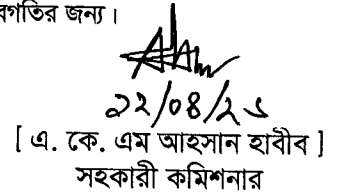 বগতির জন্য।
২২/০৪/২১
[ এ. কে. এম আহসান হাবীব ]
সহকারী কমিশনার